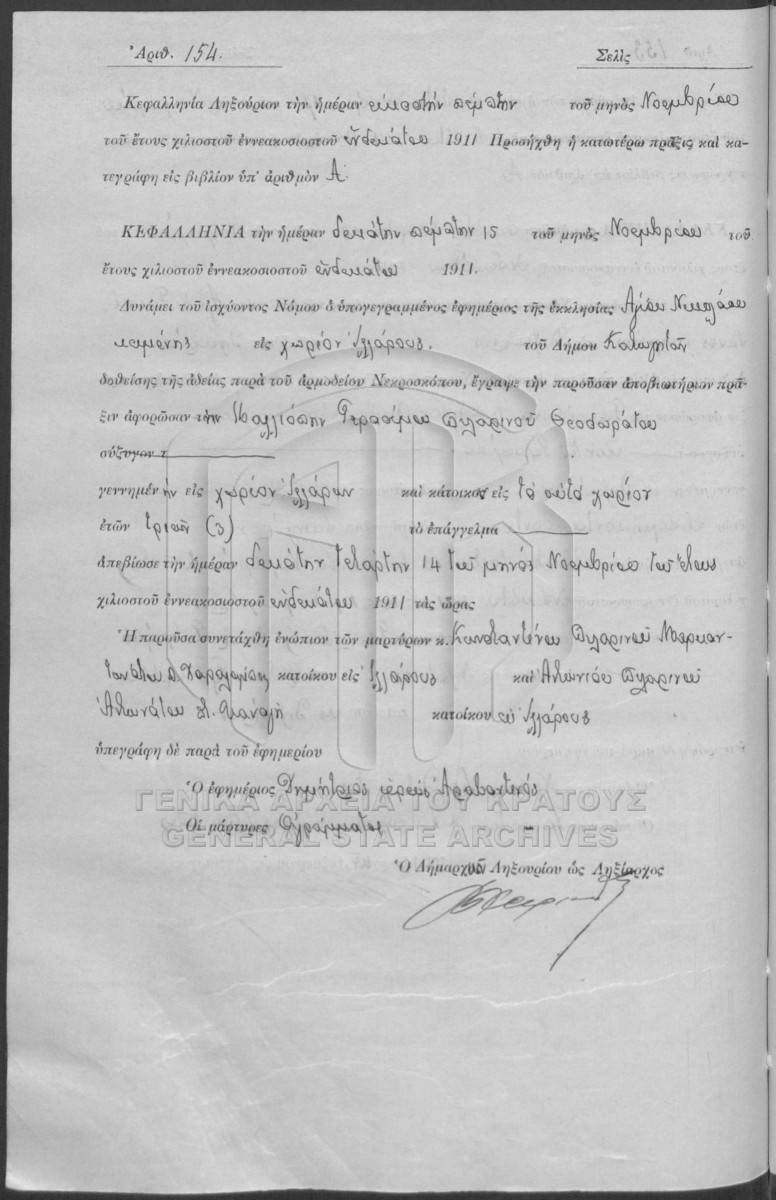 Ἀριθ. 154. Σελὶς
Κεφαλληνία Ληξούριον τὴν ἡμέραν εἰκοστὴν πέμπτην τοῦ μηνὸς Νοεμβρίου
τοῦ ἔτους χιλιοστοῦ ἐννεακοσιοστοῦ ἑνδεκάτου 1911 Προσήχθη ἡ κατωτέρω πρᾶξις καὶ κα-
τεγράφη εἰς βιβλίον ὑπ' ἀριθμὸν Α
ΚΕΦΑΛΛΗΝΙΑ τὴν ἡμέραν δεκάτην πέμπτην 15 τοῦ μηνὸς Νοεμβρίου τοῦ
ἔτους χιλιοστοῦ ἐννεακοσιοστοῦ ἑνδεκάτου 1911.
Δυνάμει τοῦ ἰσχύοντος Νόμου ὁ ὑπογεγραμμένος ἐφημέριος τῆς ἐκκλησίας Ἁγίου Νικολάου
κειμένης εἰς χωρίον τοῦ Δήμου
δοθείσης τῆς ἀδείας παρὰ τοῦ ἁρμοδείου Νεκροσκόπου, ἔγραψε τὴν παροῦσαν ἀποβιωτήριον πρᾶ-
ξιν ἀφορῶσαν τὴν Καλλιόπην Γερασίμου Πυλαρινοῦ Θεοδωράτου
σύζυγον τ
γεννημένην εἰς χωρίον καὶ κάτοικον εἰς τὸ αὐτὸ χωρίον
ἐτῶν τριῶν (3) τὸ ἐπάγγελμα
ἀπεβίωσε τὴν ἡμέραν δεκάτην τετάρτην 14 τοῦ μηνὸς Νοεμβρίου τοῦ ἔτους
χιλιοστοῦ ἐννεακοσιοστοῦ ἑνδεκάτου 1911 τὰς ὥρας
Ἡ παροῦσα συνετάχθη ἐνώπιον τῶν μαρτύρων κ. Κωνσταντίνου Πυλαρινοῦ Μαρκαν-
τωνάτου κατοίκου εἰς καὶ Ἀντωνίου Πυλαρινοῦ
Ἀντωνάτου κατοίκου
ὑπεγράφη δὲ παρὰ τοῦ ἐφημερίου
Ὁ ἐφημέριος Δημήτριος ἱερεὺς Ἀραβαντινός
Οἱ μάρτυρες Ἀγράμματοι
Ὁ Δήμαρχος Ληξουρίου ὡς Ληξίαρχος
ΓΕΝΙΚΑ ΑΡΧΕΙΑ ΤΟΥ ΚΡΑΤΟΥΣ
GENERAL STATE ARCHIVES